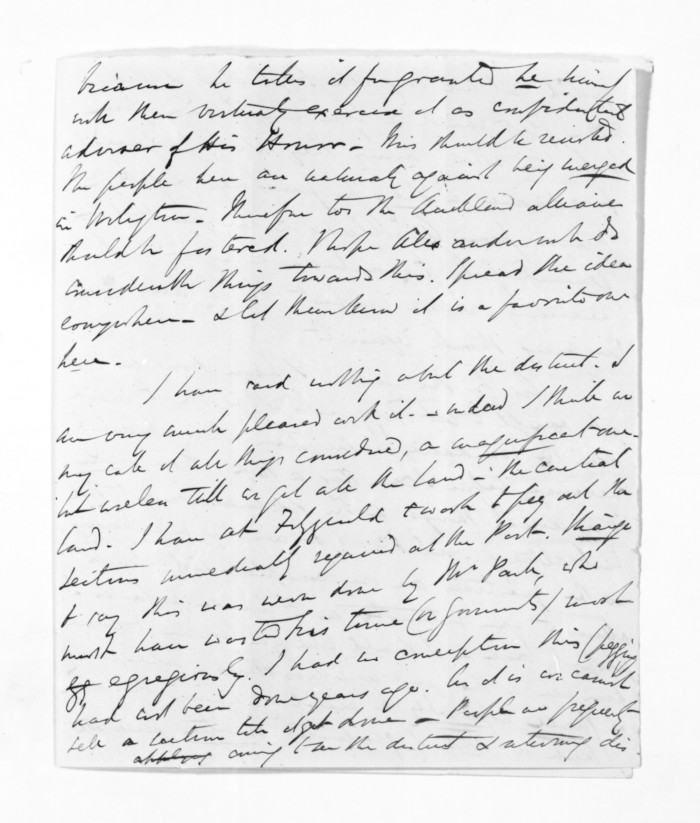 because he takes it for granted he himself
will then virtually exercise it as confidential
adviser of His Honor - This should be resisted.
The people here are naturally against being merged
in Wellington - Therefore too the Auckland alliance
should be fostered. I hope Alexander will do
considerable things towards this. Spread the idea
everywhere - & let them know it is a favorite one
here.
I have said nothing about the district. I
am very much pleased with it - indeed I think we
may call it all things considered, a magnificent one -
but useless till we get all the land - the central
land. I have at Fitzgerald to work to peg out the
sections immediately required at the Port. Strange
to say this was never done by Mr Park, who
must have wasted his time (or Government's) most
egregiously. I had no conception this (pegging
had not been done years ago. As it is we cannot
sell a section till it get done - People are frequently
applying coming to see the district & returning dis